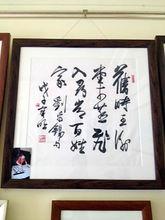 舊時王謝
堂前燕飛
入尋常百姓
家 劉禹錫句
戊子